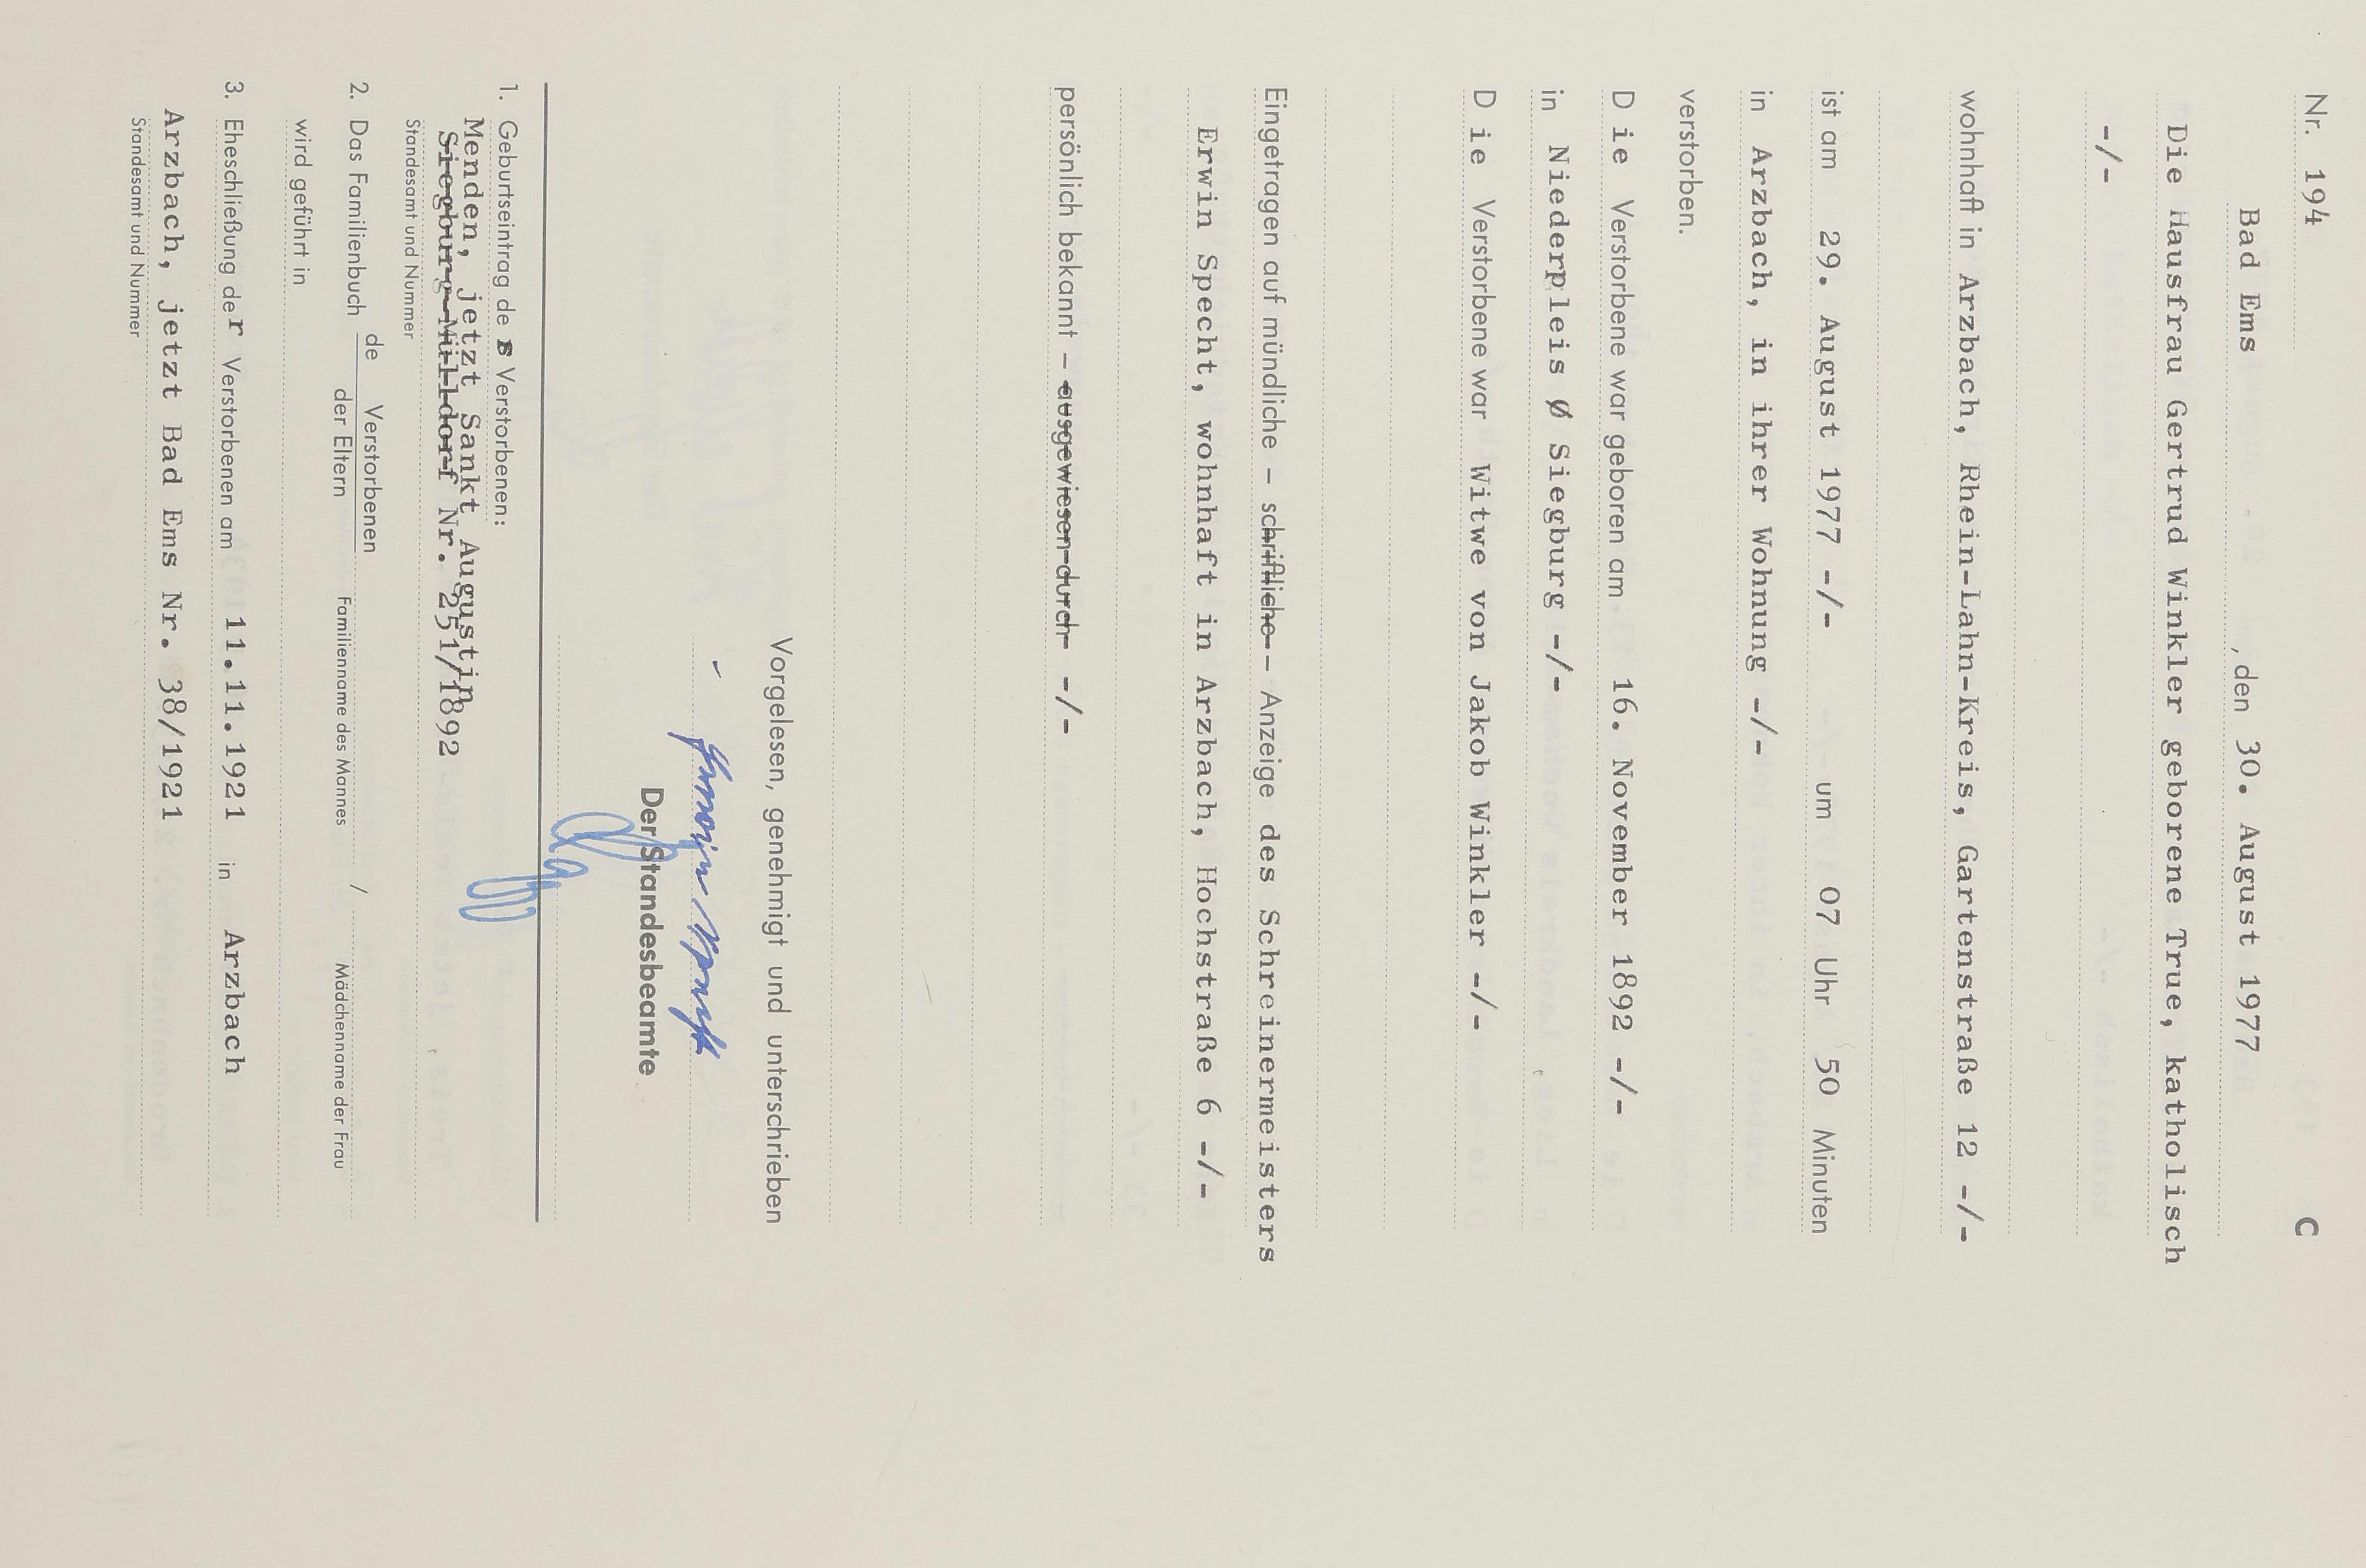 Nr. 194 C
Bad Ems , den 30. August 1977
Die Hausfrau Gertrud Winkler geborene True, katholisch
-/-
wohnhaft in Arzbach, Rhein-Lahn-Kreis, Gartenstraße 12 -/-
ist am 29. August 1977 -/- um 07 Uhr 50 Minuten
in Arzbach, in ihrer Wohnung -/-
verstorben.
D ie Verstorbene war geboren am 16. November 1892 -/-
in Niederpleis Ø Siegburg -/-
D ie Verstorbene war Witwe von Jakob Winkler -/-
Eingetragen auf mündliche – schriftliche – Anzeige des Schreinermeisters
Erwin Specht, wohnhaft in Arzbach, Hochstraße 6 -/-
persönlich bekannt – ausgewiesen durch -/-
Vorgelesen, genehmigt und unterschrieben
Erwin Specht
Der Standesbeamte
1. Geburtseintrag de r Verstorbenen:
Menden, jetzt Sankt Augustin
Siegburg-Mülldorf Nr. 251/1892
Standesamt und Nummer
2. Das Familienbuch de Verstorbenen
der Eltern Familienname des Mannes / Mädchenname der Frau
wird geführt in
3. Eheschließung der Verstorbenen am 11.11.1921 in Arzbach
Arzbach, jetzt Bad Ems Nr. 38/1921
Standesamt und Nummer